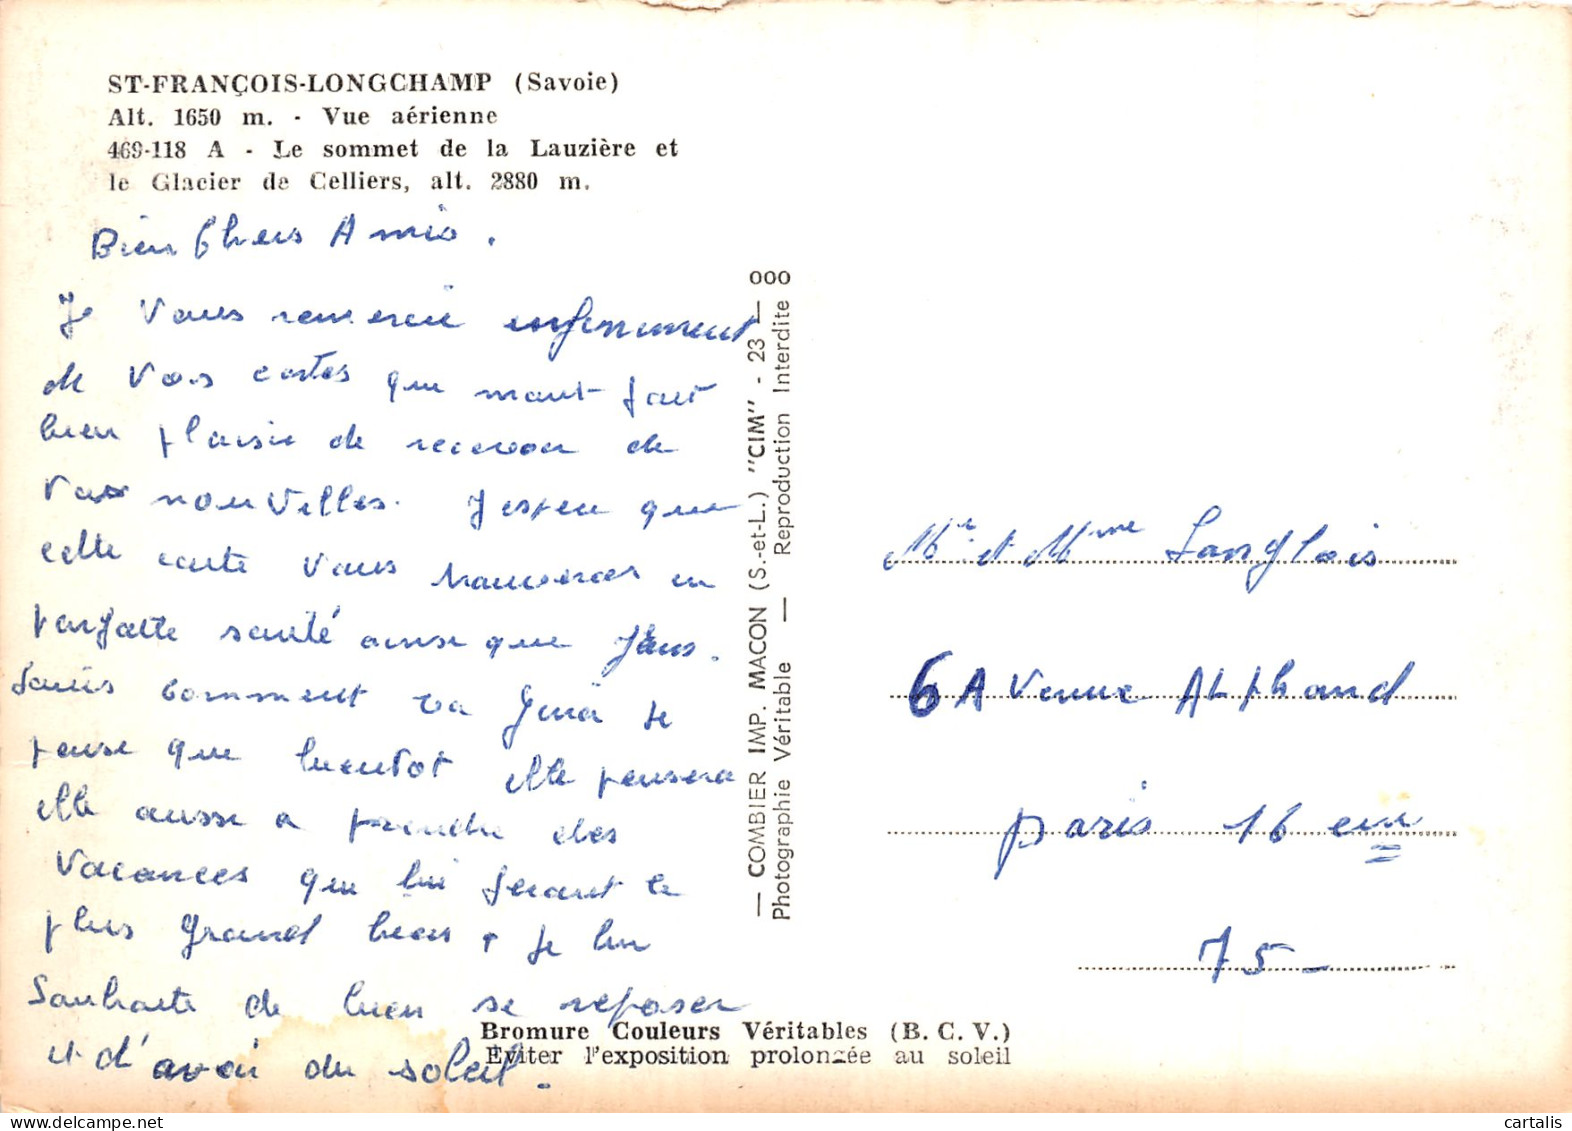 ST-FRANÇOIS-LONGCHAMP (Savoie)
Alt. 1650 m. - Vue aérienne
469-118 A - Le sommet de la Lauzière et
le Glacier de Celliers, alt. 2880 m.
Bien Chers Amis.
Je Vous remercie infiniment
de Vos cartes que mont fait
bien plaisir de recevoir de
Vos nouvelles. J'espeu que
cette carte vous trouveras en
parfaite santé ainsi que
comment va Gina je
pense que bientot elle pensera
elle aussi a prendre des
Vacances que lui feront le
plus grand bien je lui
Souhaite de bien se reposer
et d'avoir du soleil.
— COMBIER IMP. MACON (S.-et-L.) "CIM" - 23 — 000
Photographie Véritable — Reproduction Interdite
Mr et Mme Langlois
6 Avenue Alphand
Paris 16 eme
75-
Bromure Couleurs Véritables (B. C. V.)
Eviter l'exposition prolongée au soleil
cartalis